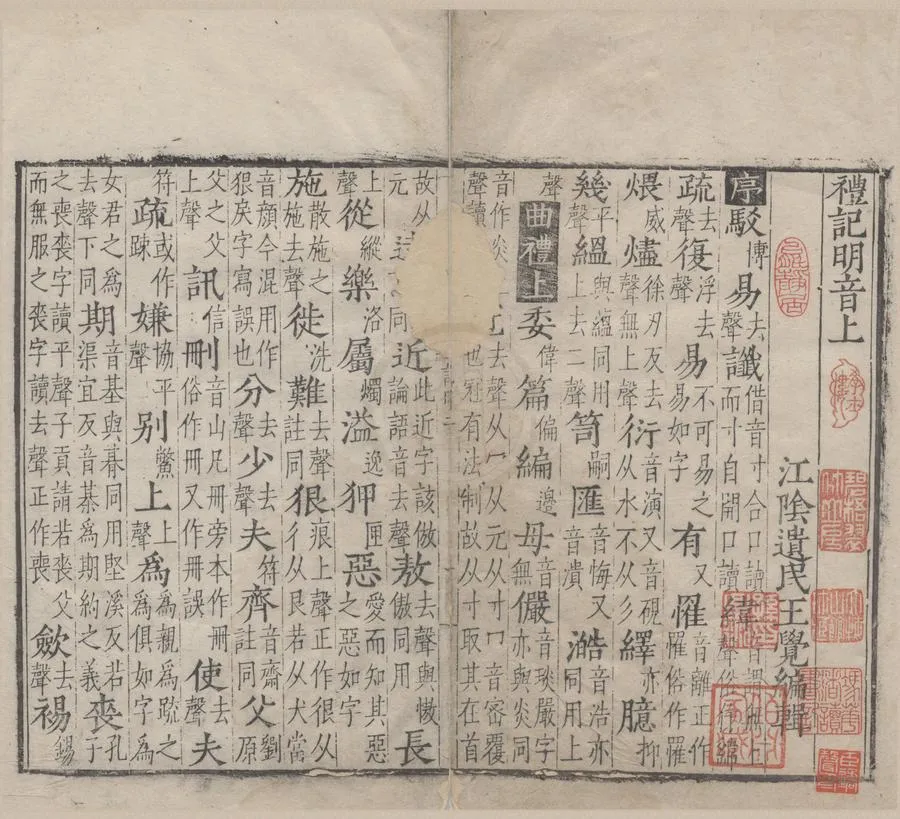 禮記明音上
江陰遺民王覺編輯
序駁博易去聲讖借音寸合口讀而寸自開口讀緯
疏去聲復浮去聲易不可易之易如字有又罹音離正作罹俗作罹
煨威燼徐刃反去聲無上聲衍音演又音硯从水不从彳繹亦臆抑
幾平聲縕上與蘊同用去二聲笥嗣匯音悔又音潰澔音浩亦同用上
聲曲禮上委偉篇偏編邊毋音無儼音琰嚴字亦與炎同
音作炎去聲从冖从元从寸冖音冞覆
聲讀也冠有法制故从寸取其在首
故从元同近此近字該倣論語音去聲敖去聲與傲傲同用長
上聲從縱樂洛屬燭溢逸狎匣惡愛而知其惡之惡如字
施散施之施去聲徙洗難去聲註同狠痕上聲正作很从彳从艮若从犬當
音顏今混用作狠戾字寫誤也分去聲少去聲夫符齊音齋註同父劉原
父之父上聲訊信刪音山凡冊旁本作冊俗作冊又作冊誤使去聲夫
符疏或作疎嫌協平聲別鱉上上聲為為親為疏之為俱如字為
女君之為去聲下同期音基與朞同用堅溪反若渠宜反音棊為期約之義喪孔子
之喪喪字讀平聲子貢請若喪父而無服之喪字讀去聲正作喪歛去聲裼錫